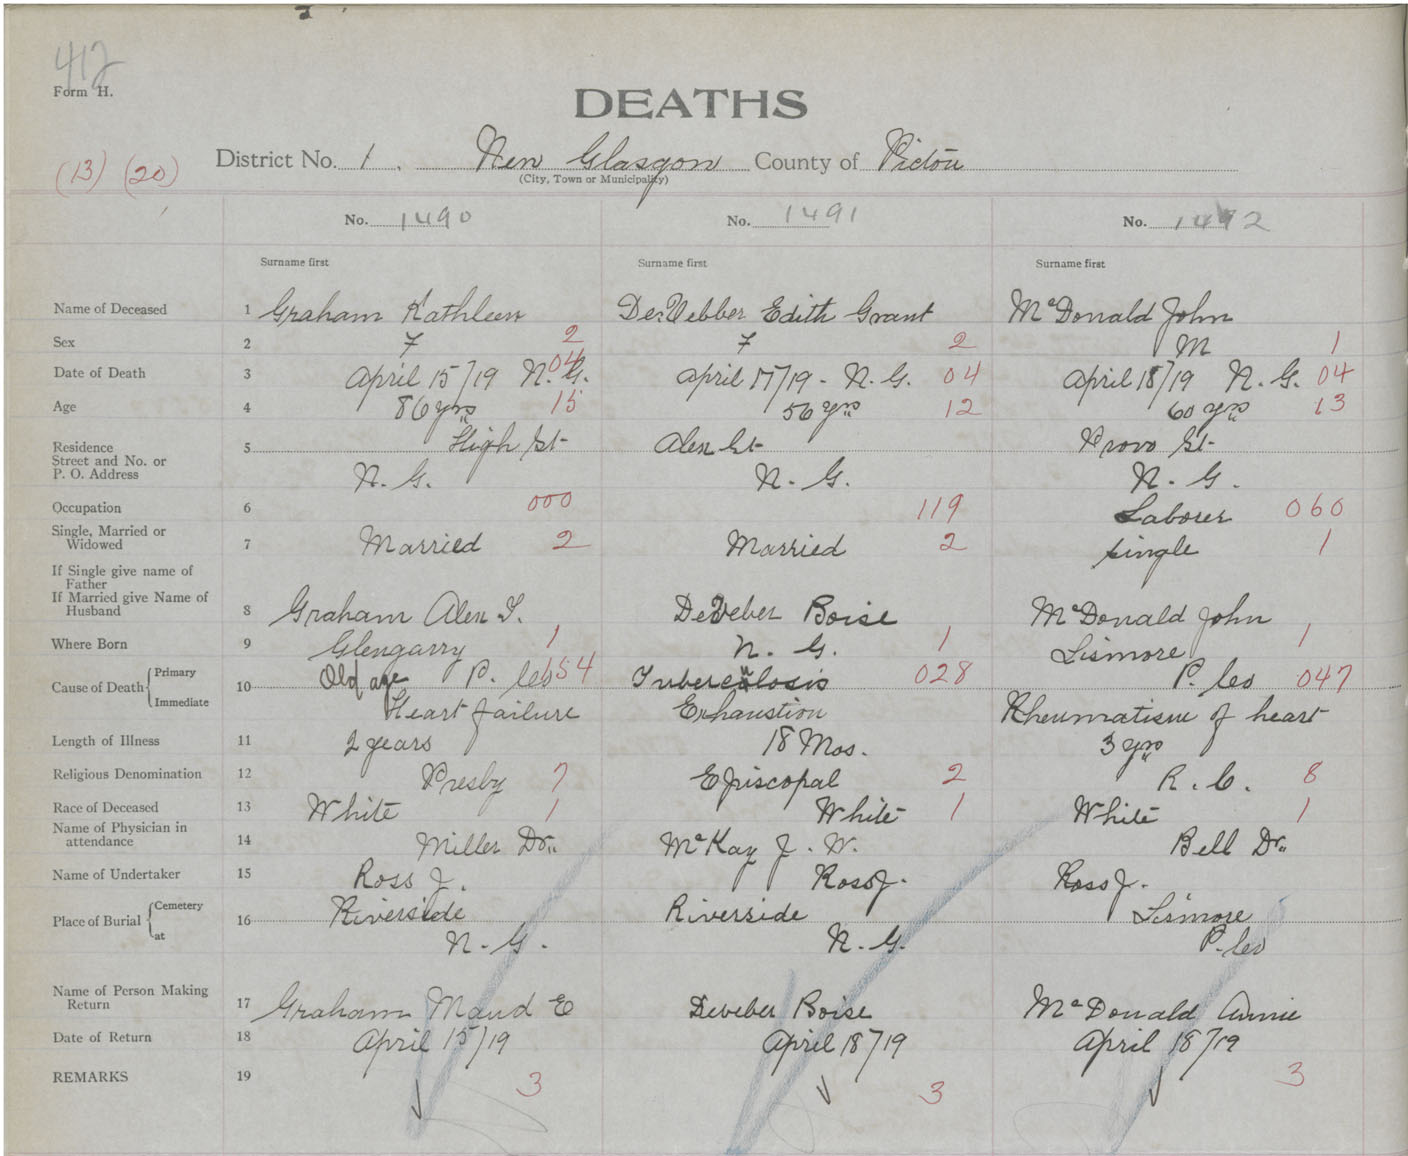 412
Form H.
DEATHS
(13) (20)
District No. 1. New Glasgow County of Pictou
(City, Town or Municipality)
No. 1490 No. 1491 No. 1492
Surname first Surname first Surname first
Name of Deceased 1 Graham Kathleen DeVebber Edith Grant McDonald John
Sex 2 F 2 F 2 M 1
Date of Death 3 April 15/19 N. G. 04 April 17/19 - N. G. 04 April 18/19 N. G. 04
Age 4 86 yrs 15 56 yrs 12 60 yrs 13
Residence 5 High St Alex St Provo St
Street and No. or
P. O. Address N. G. N. G. N. G.
Occupation 6 000 119 Laborer 060
Single, Married or
Widowed 7 Married 2 Married 2 Single 1
If Single give name of
Father
If Married give Name of
Husband 8 Graham Alex F. DeVeber Boise McDonald John
Where Born 9 Glengarry 1 N. G. 1 Lismore 1
Cause of Death Primary 10 Old age P. Co 154 Tuberculosis 028 P. Co 047
Immediate Heart failure Exhaustion Rheumatism of heart
Length of Illness 11 2 years 18 Mos. 3 yrs
Religious Denomination 12 Presby 7 Episcopal 2 R. C. 8
Race of Deceased 13 White 1 White 1 White 1
Name of Physician in
attendance 14 Miller Dr. McKay J. W. Bell Dr.
Name of Undertaker 15 Ross J. Ross J. Ross J.
Place of Burial Cemetery 16 Riverside Riverside Lismore
at N. G. N. G. P. Co
Name of Person Making
Return 17 Graham Maud E Deveber Boise McDonald Annie
Date of Return 18 April 15/19 April 18/19 April 18/19
REMARKS 19 3 3 3